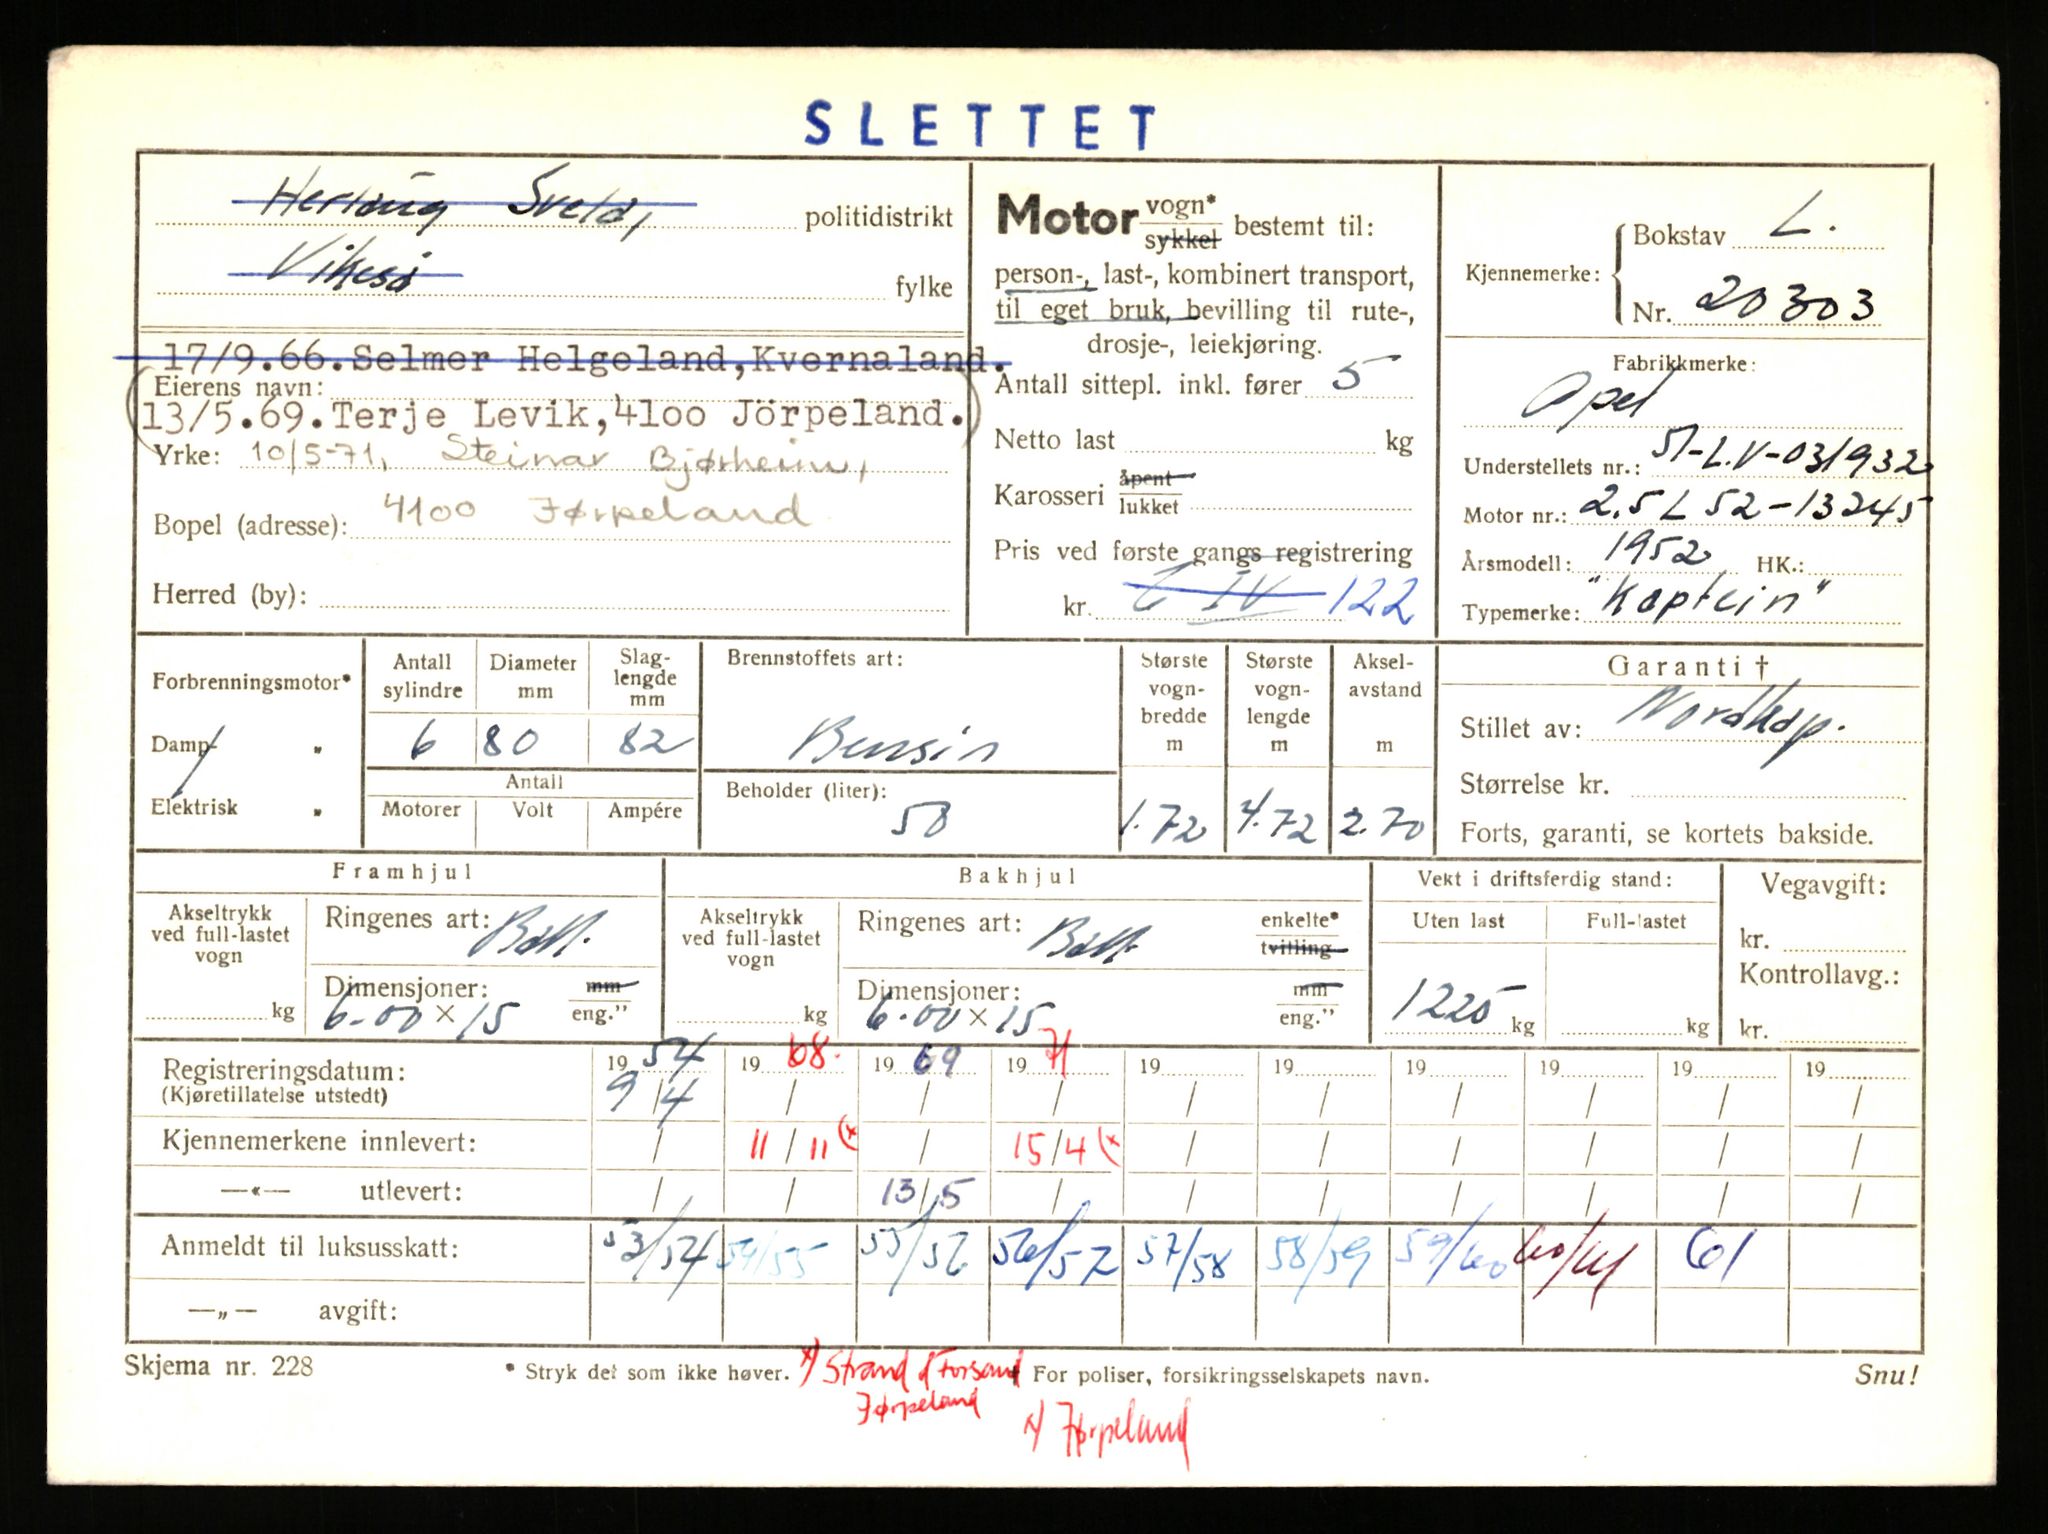 SLETTET
politidistrikt
Vikeså
fylke
17/9.66. Selmer Helgeland, Kvernaland.
Eierens navn:
(13/5.69. Terje Levik, 4100 Jörpeland.)
Yrke: 10/5-71, Steinar Bjørheim,
Bopel (adresse): 4100 Jørpeland
Herred (by):
Motor vogn* sykkel bestemt til:
person-, last-, kombinert transport,
til eget bruk, bevilling til rute-,
drosje-, leiekjøring.
Antall sittepl. inkl. fører 5
Netto last kg
Karosseri åpent lukket
Pris ved første gangs registrering
kr. 6 IV 122
Kjennemerke: Bokstav L.
Nr. 20303
Fabrikkmerke:
Opel
Understellets nr.: 51-L.V-031932
Motor nr.: 2.5L 52-13245
Årsmodell: 1952 HK.:
Typemerke: "Kaptein"
Forbrenningsmotor*
Damp- "
Elektrisk "
Antall sylindre Diameter mm Slaglengde mm
6 80 82
Antall
Motorer Volt Ampére
Brennstoffets art:
Bensin
Beholder (liter):
50
Største vogn-bredde m Største vogn-lengde m Aksel-avstand m
1.72 4.72 2.70
Garanti †
Stillet av: Nordkap.
Størrelse kr.
Forts, garanti, se kortets bakside.
Framhjul
Akseltrykk ved full-lastet vogn kg
Ringenes art: Ball.
Dimensjoner: mm
6-00 × 15 eng."
Bakhjul
Akseltrykk ved full-lastet vogn kg
Ringenes art: Ball. enkelte* tvilling
Dimensjoner: mm
6.00 × 15 eng."
Vekt i driftsferdig stand:
Uten last Full-lastet
1225 kg kg
Vegavgift:
kr.
Kontrollavg.:
kr.
Registreringsdatum: 1954 1968. 1969 1971 19 19 19 19 19 19
(Kjøretillatelse utstedt) 9/4 / / / / / / / / /
Kjennemerkene innlevert: / 11/11 (x / 15/4 (x / / / / / /
—«— utlevert: / / 13/5 / / / / / / /
Anmeldt til luksusskatt: 53/54 54/55 55/56 56/57 57/58 58/59 59/60 60/61 61
—„— avgift:
Skjema nr. 228 * Stryk det som ikke høver. x) Strand & Forsand † For poliser, forsikringsselskapets navn. Snu!
Jørpeland
x) Jørpeland